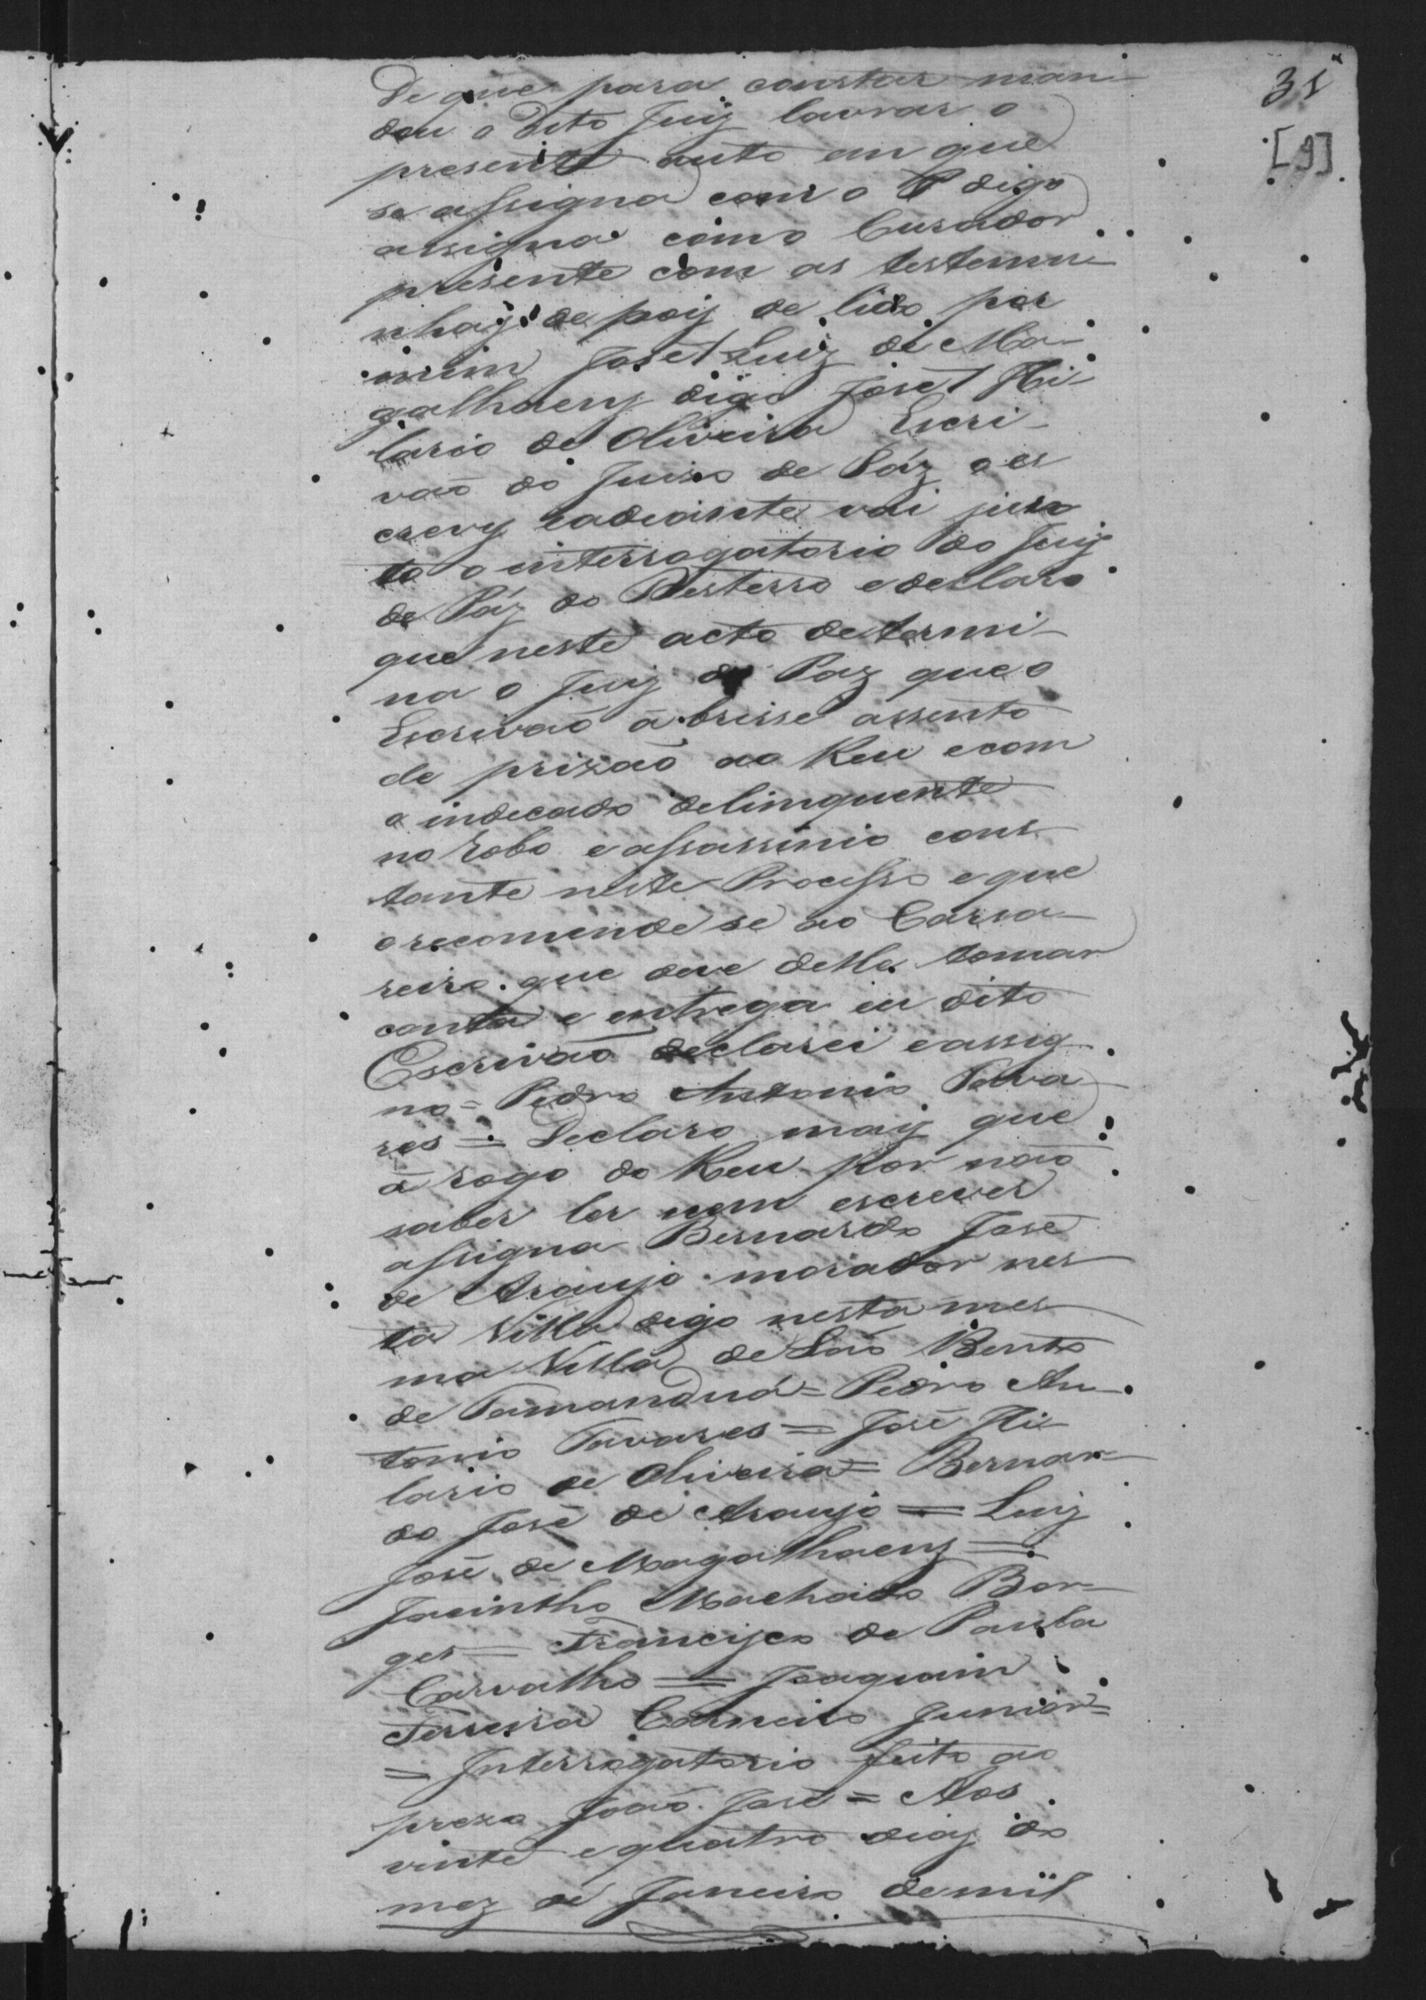 31
[9]
De que para constar man-
dou o Dito Juiz lavrar o
presente auto em que
se assigna com o R digo
assigna como Curador
presente com as testemu-
nhaz depoiz de lido por
mim José Luiz de Ma-
galhaens digo José Hi-
lario de Oliveira Escri-
vaõ do Juizo de Páz o es
crevy eadeiante vai jun
to o interrogatorio do Juiz
de Páz do Desterro e declaro
que neste acto determi-
na o Juiz de Paz que o
Escrivaõ abrisse assento
de prizaõ ao Reu e com
o indecado delinquente
no robo e assassinio cons
tante neste Processo e que
o recomende se ao Carsa-
reiro que deve delle tomar
conta e entrega eu dito
Escrivaõ declarei e assig
no = Pedro Antonio Tava
res = Declaro maiz que
á rogo do Reu por naõ
saber ler nem escrever
assigna Bernardo José
de Araujo morador nes
ta Villa digo nesta mes
ma Villa de Saõ Bento
de Tamanduá = Pedro An-
tonio Tavares = José Hi-
lario de Oliveira = Bernar-
do José de Araujo = Luiz
José de Magalhaens =
Jacintho Machado Bor-
ges = Francisco de Paula
Carvalho = Joaquim
Ferreira Carneiro Junior =
= Interrogatorio feito ao
prezo Joaõ José = Aos
vinte e quatro diaz do
mez de Janeiro de mil